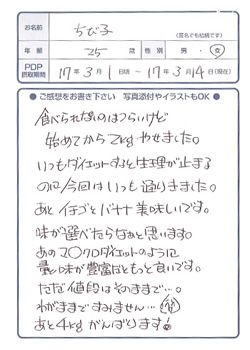 お名前 ちび子
(匿名でも結構です)
年齢 25歳 性別 男・女
PDP摂取期間 17年3月1日頃 〜 17年3月14日(現在)
●ご感想をお書き下さい 写真添付やイラストもOK●
食べられないのはつらいけど
始めてから2kgやせました。
いつもダイエットすると生理が止まる
のに今回はいつも通りきました。
あとイチゴとバナナ美味しいです。
味が選べたらなぁと思います。
あのマ○クロダイエットのように
量と味が豊富だともっと良いです。
ただ値段はそのままで…。
わがままですみません…
あと4kgがんばります!